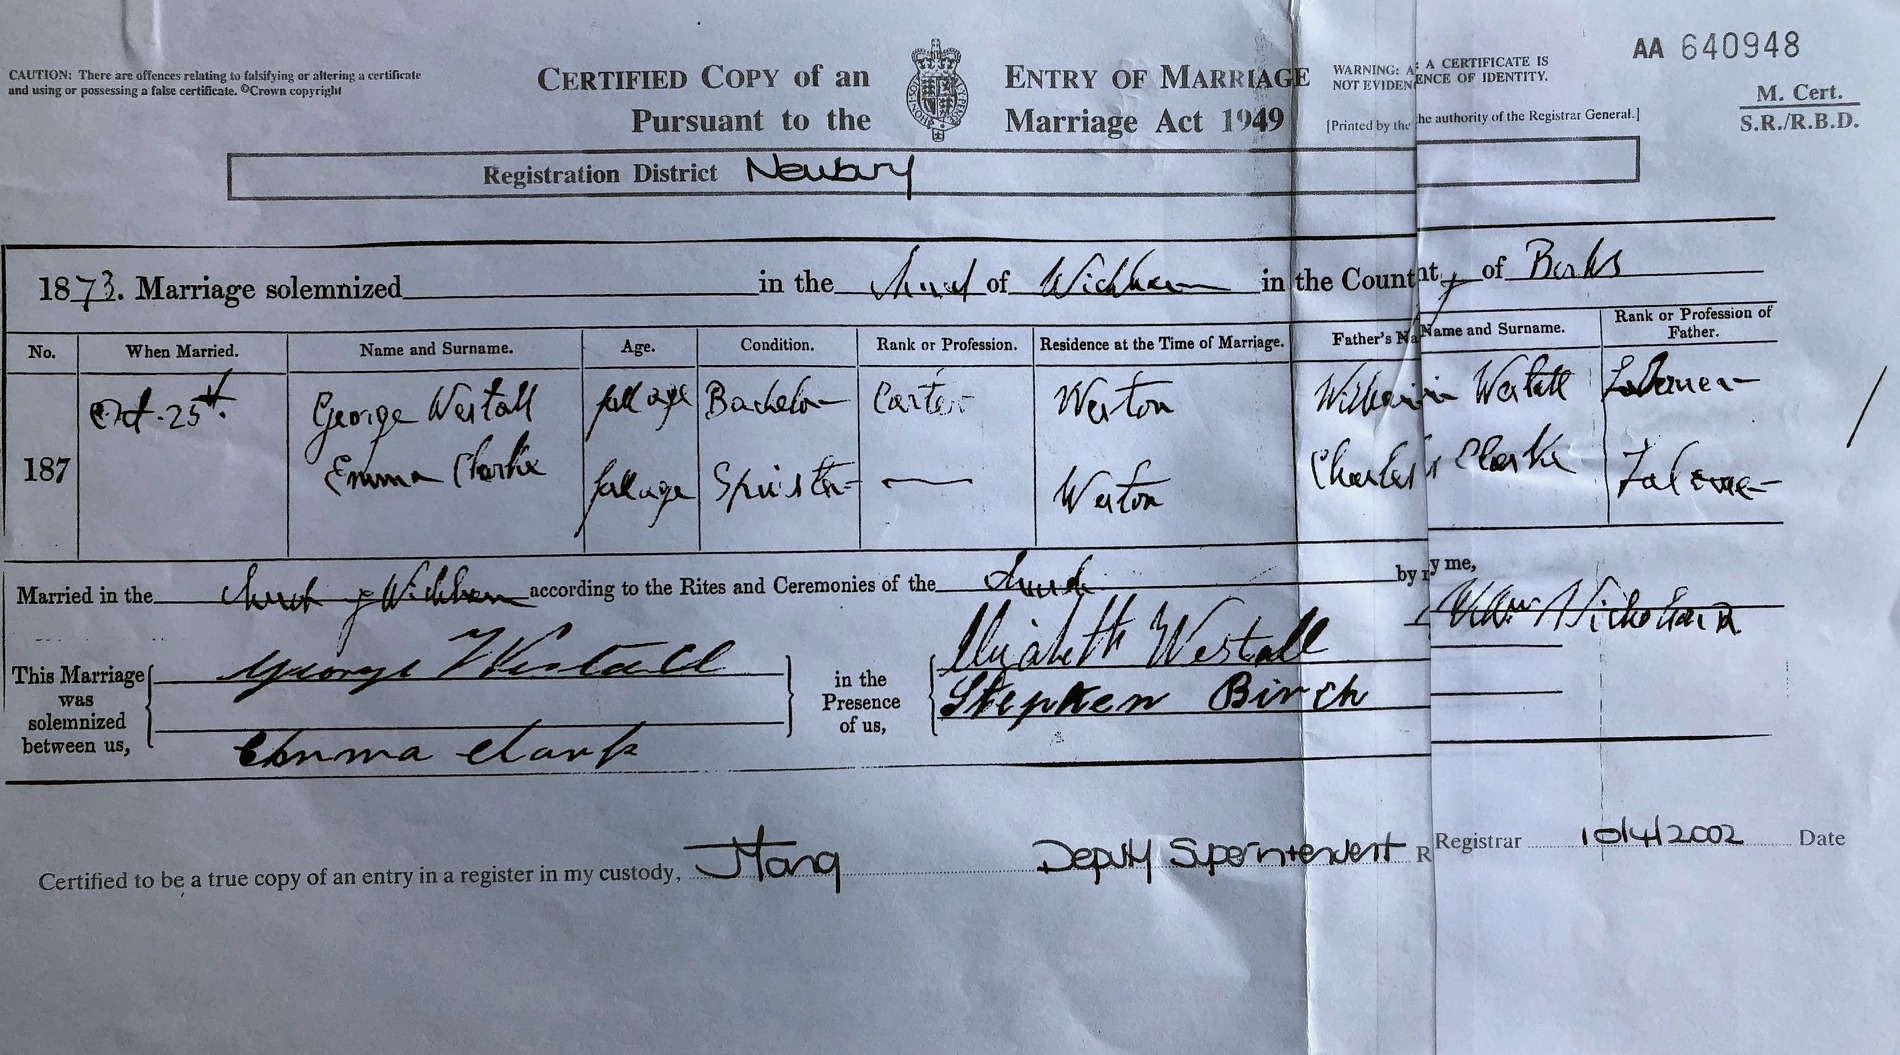 CAUTION: There are offences relating to falsifying or altering a certificate
and using or possessing a false certificate. ©Crown copyright
CERTIFIED COPY OF AN ENTRY OF MARRIAGE
Pursuant to the Marriage Act 1949
WARNING: A CERTIFICATE IS
NOT EVIDENCE OF IDENTITY.
[Printed by the authority of the Registrar General.]
AA 640948
M. Cert.
S.R./R.B.D.
Registration District Newbury
1873. Marriage solemnized in the Church of Wickham in the County of Berks
No. When Married. Name and Surname. Age. Condition. Rank or Profession. Residence at the Time of Marriage. Father's Name and Surname. Rank or Profession of Father.
187 Oct. 25th. George Westall full age Bachelor Carter Weston William Westall Labourer
Emma Clarke full age Spinster — Weston Charles Clarke Labourer
Married in the Church of Wickham according to the Rites and Ceremonies of the Church by me,
This Marriage was solemnized between us, George Westall in the Presence of us, Elizabeth Westall
Stephen Birch
Emma Clark
Certified to be a true copy of an entry in a register in my custody, Deputy Superintendent Registrar 10/4/2002 Date